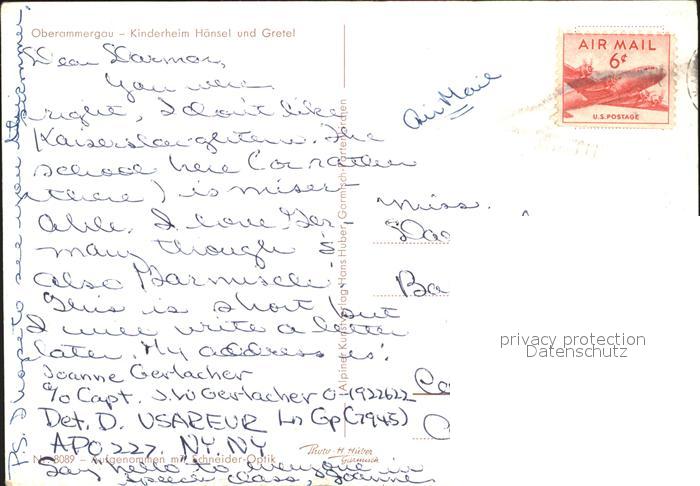 Oberammergau – Kinderheim Hänsel und Gretel
Dear Darmar,
You were
right, I don't like
Kaiserslaughtern. The
school here (or rather
there) is miser-
able. I love Ger-
many though &
also Garmisch.
This is short but
I will write a letter
later. My address is:
Joanne Gerlacher
c/o Capt. J.W Gerlacher O-1922622
Det. D. USAREUR Ln Gp (7945)
APO 227, NY. NY
Say hello to everyone in
speech class, Joanne
P.S. I hope to see you this summer.
Nr. 8089 – Aufgenommen mit Schneider-Optik
Photo-H. Huber
Garmisch
Alpiner Kunstverlag Hans Huber, Garmisch-Partenkirchen
AIR MAIL
6¢
U.S. POSTAGE
Air Mail
Miss.
Ba
Co
privacy protection
Datenschutz